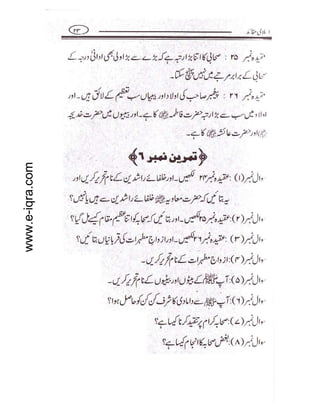 اسلامی عقائد ۲۳
عقیدہ نمبر ۲۵ : صحابی کا اتنا بڑا رتبہ ہے کہ بڑے سے بڑا ولی بھی ادنیٰ درجہ کے
صحابی کے برابر مرتبے میں نہیں پہنچ سکتا۔
عقیدہ نمبر ۲۶ : پیغمبر صاحب کی اولاد اور بیبیاں سب تعظیم کے لائق ہیں۔ اور
اولاد میں سب سے بڑا رتبہ حضرت فاطمہؓ کا ہے۔ اور بیبیوں میں حضرت خدیجہؓ
اور حضرت عائشہؓ کا ہے۔
﴿تمرین نمبر ۶﴾
سوال نمبر (۱) : عقیدہ نمبر ۲۴ لکھیں۔ اور خلفائے راشدین کے نام تحریر کریں اور
یہ بتائیں کہ حضرت معاویہؓ خلفائے راشدین سے ہیں یا نہیں؟
سوال نمبر (۲) : عقیدہ نمبر ۲۵ لکھیں۔ اور بتائیں کہ صحابہ کو اتنا عظیم مقام کیسے مل گیا؟
سوال نمبر (۳) : عقیدہ نمبر ۲۶ لکھیں۔ اور ازواج مطہرات کی قربانیاں بتائیں؟
سوال نمبر (۴) : ازواج مطہرات کے نام تحریر کریں۔
سوال نمبر (۵) : آپ ﷺ کے بیٹے اور بیٹیوں کے نام تحریر کریں۔
سوال نمبر (۶) : آپ ﷺ سے دامادی کا شرف کن کن کو حاصل ہوا؟
سوال نمبر (۷) : صحابہ کرام پر تنقید کرنا کیسا ہے؟
سوال نمبر (۸) : بغض صحابہ کا انجام کیسا ہے؟
www.e-iqra.com